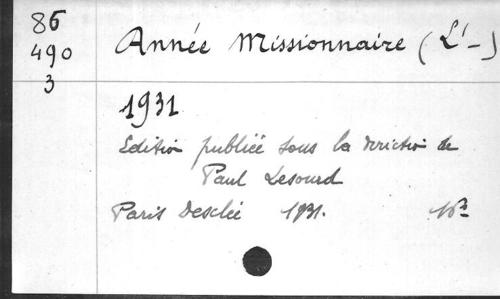 86
490
3
Année Missionnaire (L'-)
1931
Edition publiée sous la direction de
Paul Lesourd
Paris Desclée 1931.